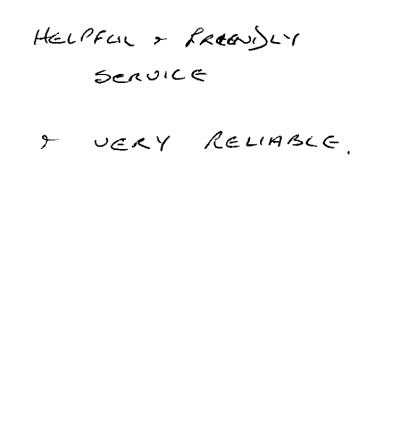 HELPFUL & FRIENDLY
SERVICE
& VERY RELIABLE.